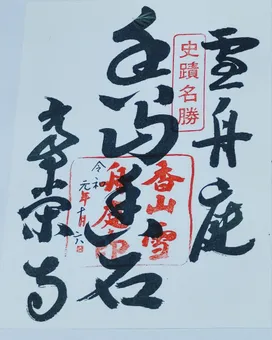 雪舟庭
史蹟名勝
香山雪
舟庭印
令和
元年十月六日
常栄寺